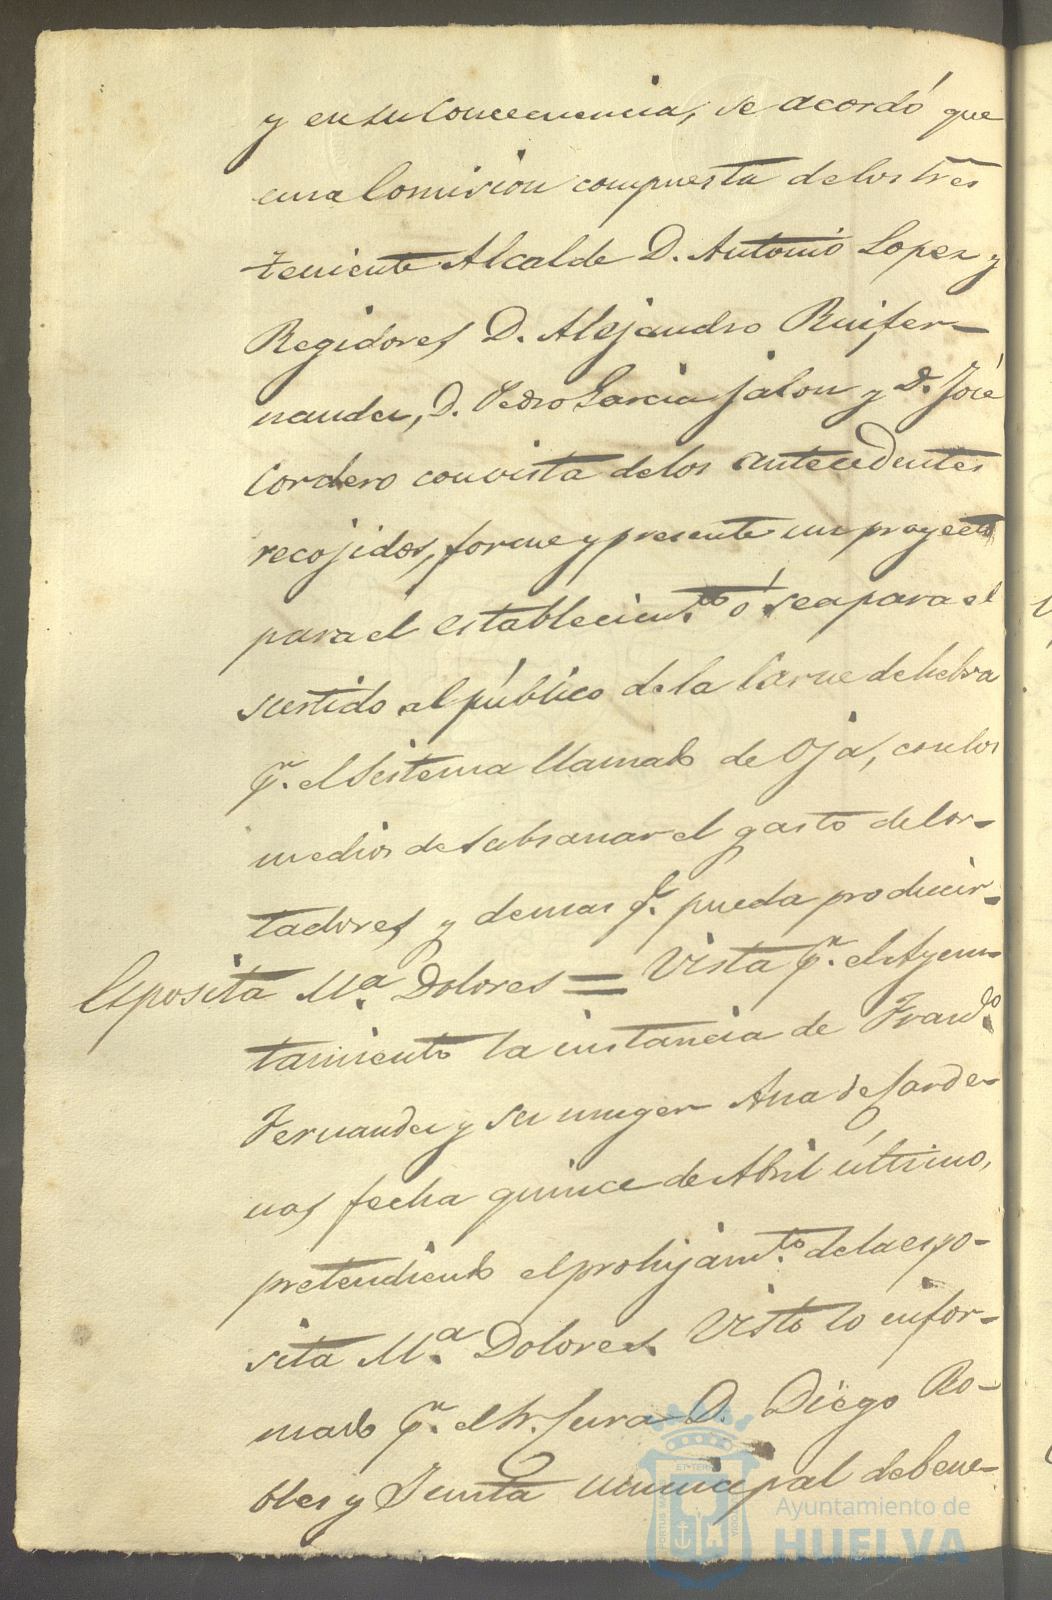 y en su Concecuencia, se acordó que
una Comision compuesta de los tres
teniente Alcalde D. Antonio Lopez y
Regidores D. Alejandro Ruifer-
nandez, D. Pedro Garcia Jalon y D. José
Cordero con vista de los antecedentes
recojidos, forme y presente un proyecto
para el establecim.to ó sea para el
surtido al público de la Carne de hebra
p.r el Sistema llamado de Oja, con los
medios de subsanar el gasto de Cor-
tadores y demas q.e pueda producir.-
Esposita M.a Dolores = Vista p.r el Ayun-
tamiento la instancia de Fran.do
Fernandez y su muger Ana de Carde-
nas fecha quince de Abril último,
pretendiendo el prohijam.to de la espo-
sita M.a Dolores. Visto lo infor-
mado p.r el Sr. Cura D. Diego Ro-
bles y Junta municipal de bene-
Ayuntamiento de
HUELVA